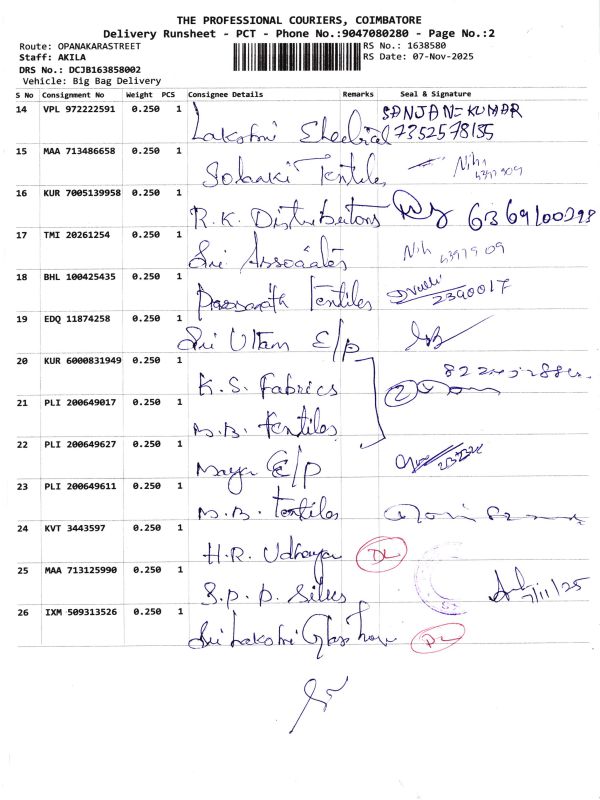 THE PROFESSIONAL COURIERS, COIMBATORE
Delivery Runsheet - PCT - Phone No.:9047080280 - Page No.:2
Route: OPANAKARASTREET RS No.: 1638580
Staff: AKILA RS Date: 07-Nov-2025
DRS No.: DCJB163858002
Vehicle: Big Bag Delivery
S No Consignment No Weight PCS Consignee Details Remarks Seal & Signature
14 VPL 972222591 0.250 1 SANJAN-KUMAR
Lakshmi 7352578155
15 MAA 713486658 0.250 1
Solanki Textiles
16 KUR 7005139958 0.250 1
R.K. Distributors
17 TMI 20261254 0.250 1
Sri Associates
18 BHL 100425435 0.250 1
Textiles 2390017
19 EDQ 11874258 0.250 1
Sri E/p
20 KUR 6000831949 0.250 1
K.S. Fabrics 2
21 PLI 200649017 0.250 1
M.B. Textiles
22 PLI 200649627 0.250 1
Maya E/p
23 PLI 200649611 0.250 1
M.B. Textiles
24 KVT 3443597 0.250 1
H.R. Udhaya DL
25 MAA 713125990 0.250 1
S.P.P. Silks 7/11/25
26 IXM 509313526 0.250 1
Sri Lakshmi Glass DL